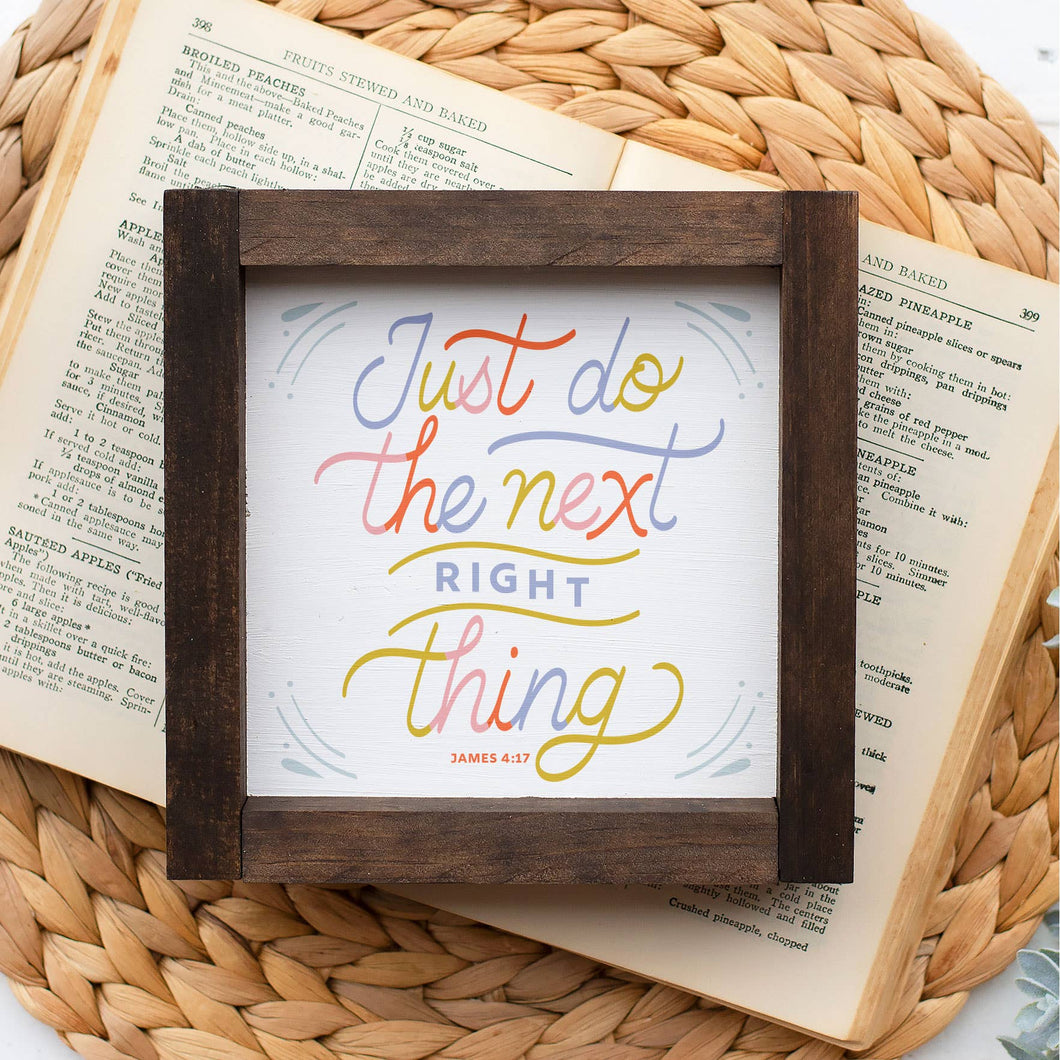 398
FRUITS STEWED AND BAKED
BROILED PEACHES
This and the above—Baked Peaches
and Mincemeat—make a good gar-
nish for a meat platter.
Drain:
Canned peaches
Place them, hollow side up, in a shal-
low pan. Place in each hollow:
A dab of butter
Sprinkle each peach lightly
Salt
Broil the peaches
flame until
See In
APPLE
Wash and
Place them
cover them
require more
New apples
Add to taste
Sliced
Stew the apples
Put them through
ricer. Return
the saucepan. Add
Sugar
to make them
for 3 minutes.
sauce, if desired,
Cinnamon
Serve it hot or cold.
add:
1 to 2 teaspoon
If served cold add:
½ teaspoon vanilla
drops of almond
If applesauce is to be
pork add:
1 or 2 tablespoons
*Canned applesauce may
soned in the same way.
SAUTÉED APPLES ("Fried
Apples")
The following recipe is good
when made with tart, well-flavo
Then it is delicious:
and slice:
6 large apples*
in a skillet over a quick fire:
2 tablespoons butter or bacon
drippings
it is hot, add the apples. Cover
until they are steaming. Sprin-
apples with:
½ cup sugar
⅛ teaspoon salt
Cook them covered over
until they are nearly
apples are dry
be added
AND BAKED
399
AZED PINEAPPLE
in:
Canned pineapple slices or spears
them in:
Brown sugar
them by cooking them in hot:
con drippings, pan drippings
butter
them with:
d cheese
grains of red pepper
ke the pineapple in a mod-
to melt the cheese.
NEAPPLE
tents of:
an pineapple
Combine it with:
sugar
namon
nts for 10 minutes.
slices. Simmer
10 minutes.
PLE
toothpicks.
moderate
EWED
thick
Jar in the about
use them. In a cold place
slightly hollowed and filled
The centers
Crushed pineapple, chopped
Just do
the next
RIGHT
thing
JAMES 4:17